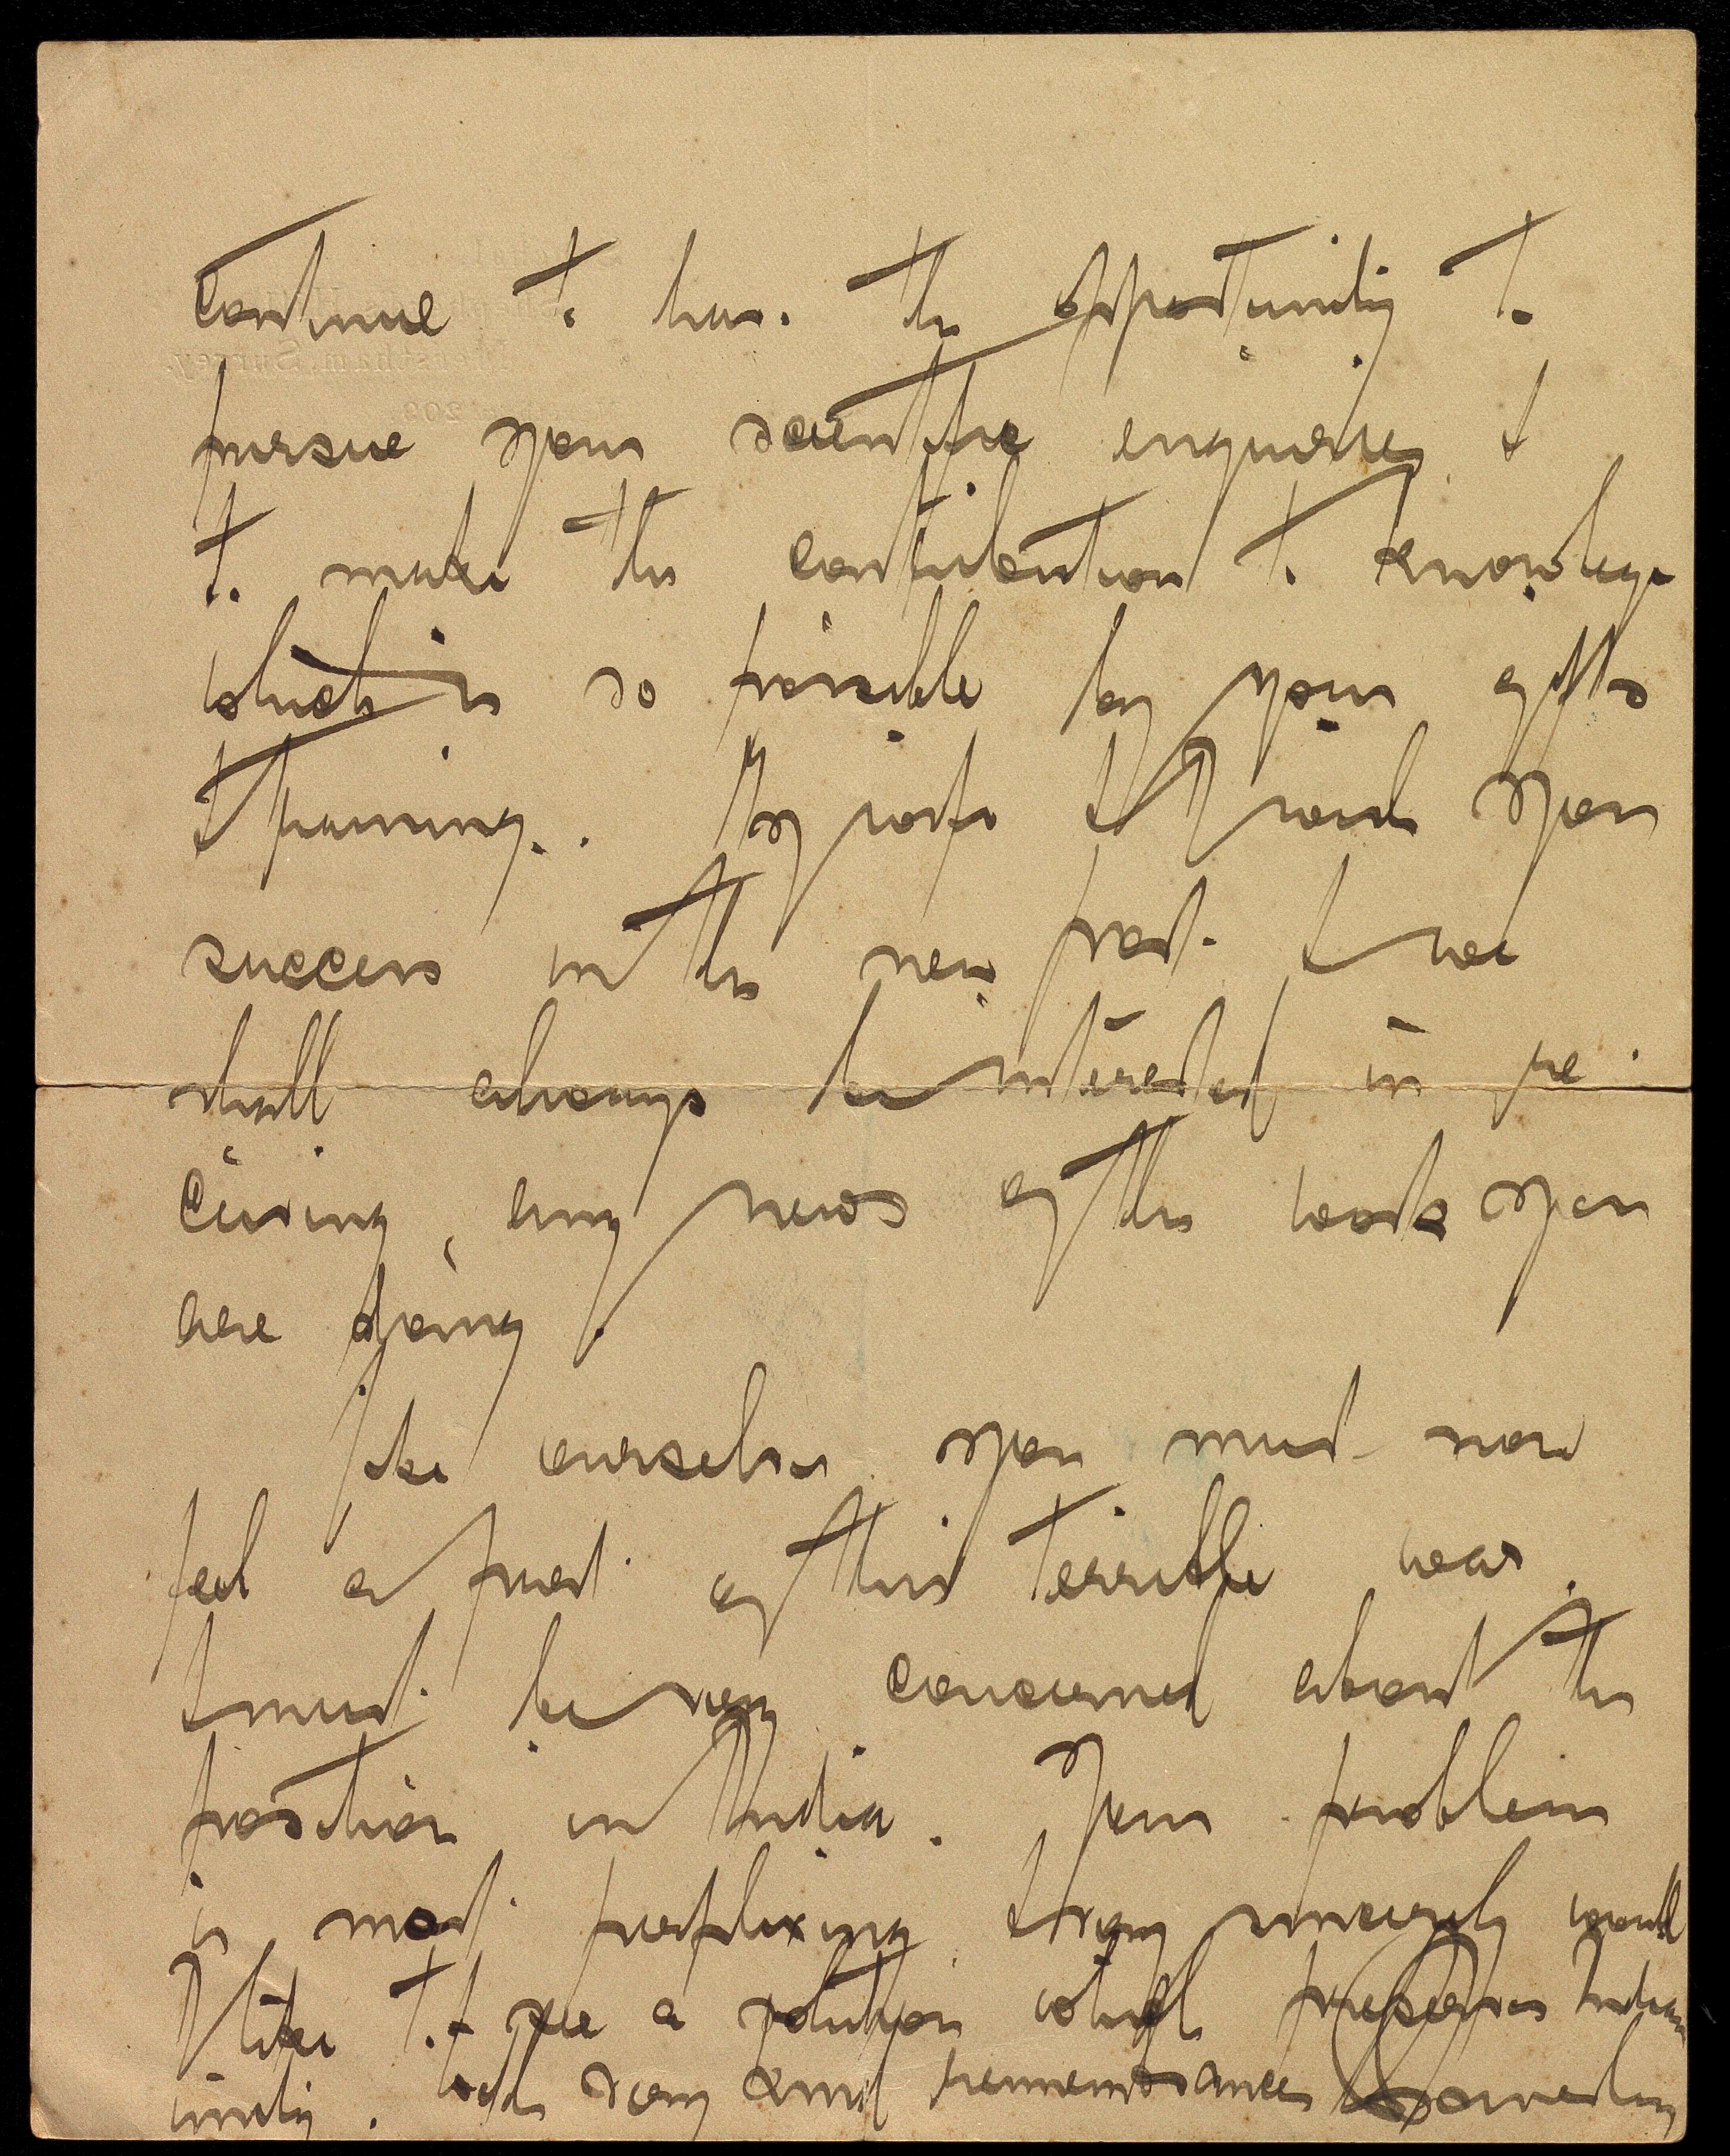 continue to have the opportunity to
pursue your scientific enquiries &
to make the contribution to knowledge
which is so possible by your gifts
& training. My wife & I wish you
success in the new post & we
shall always be interested in re-
ceiving any news of the work you
are doing.
Like ourselves you must now
feel a part of this terrible war
& must be very concerned about the
position in India. Your problem
is most perplexing & very sincerely would
I like to see a solution which preserves Indian
unity. With very kind remembrances
Merstham, Surrey.